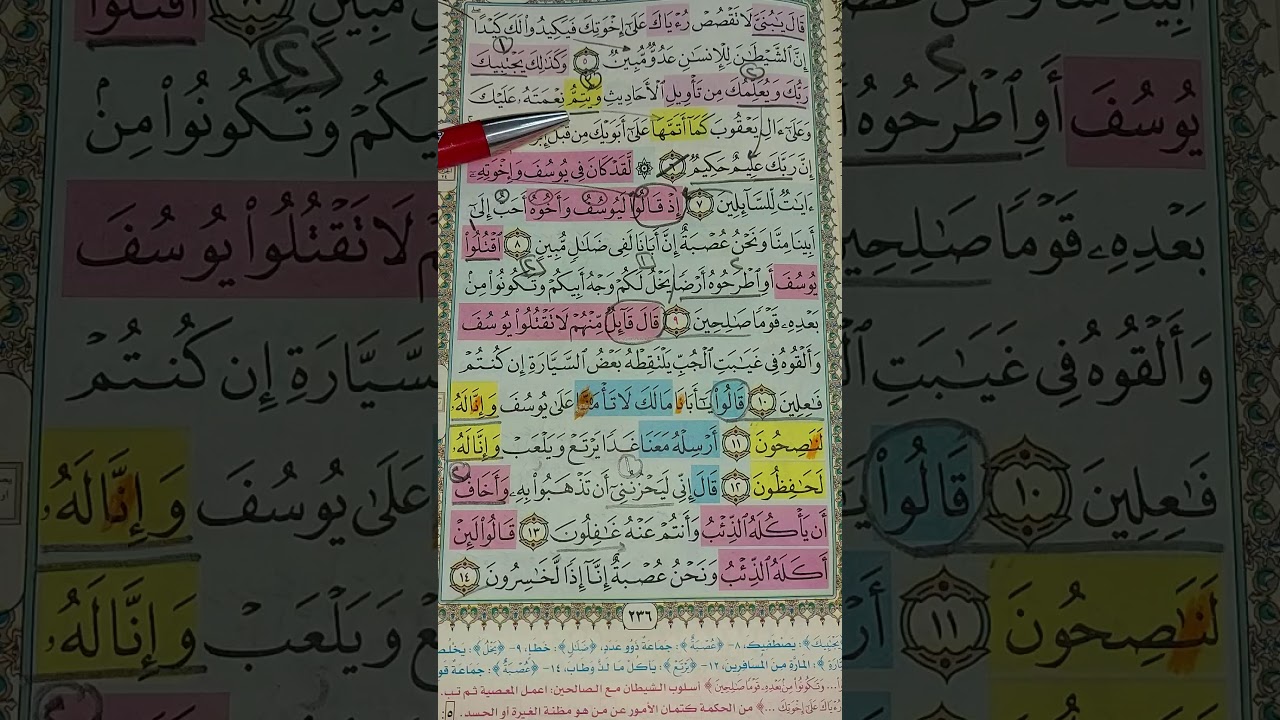 قَالَ يَٰبُنَىَّ لَا تَقْصُصْ رُءْيَاكَ عَلَىٰٓ إِخْوَتِكَ فَيَكِيدُوا۟ لَكَ كَيْدًا
إِنَّ ٱلشَّيْطَٰنَ لِلْإِنسَٰنِ عَدُوٌّ مُّبِينٌ ٥ وَكَذَٰلِكَ يَجْتَبِيكَ
رَبُّكَ وَيُعَلِّمُكَ مِن تَأْوِيلِ ٱلْأَحَادِيثِ وَيُتِمُّ نِعْمَتَهُۥ عَلَيْكَ
وَعَلَىٰٓ ءَالِ يَعْقُوبَ كَمَآ أَتَمَّهَا عَلَىٰٓ أَبَوَيْكَ مِن قَبْلُ
إِنَّ رَبَّكَ عَلِيمٌ حَكِيمٌ ٦ ۞ لَّقَدْ كَانَ فِى يُوسُفَ وَإِخْوَتِهِۦٓ
ءَايَٰتٌ لِّلسَّآئِلِينَ ٧ إِذْ قَالُوا۟ لَيُوسُفُ وَأَخُوهُ أَحَبُّ إِلَىٰٓ
أَبِينَا مِنَّا وَنَحْنُ عُصْبَةٌ إِنَّ أَبَانَا لَفِى ضَلَٰلٍ مُّبِينٍ ٨ ٱقْتُلُوا۟
يُوسُفَ أَوِ ٱطْرَحُوهُ أَرْضًا يَخْلُ لَكُمْ وَجْهُ أَبِيكُمْ وَتَكُونُوا۟ مِنۢ
بَعْدِهِۦ قَوْمًا صَٰلِحِينَ ٩ قَالَ قَآئِلٌ مِّنْهُمْ لَا تَقْتُلُوا۟ يُوسُفَ
وَأَلْقُوهُ فِى غَيَٰبَتِ ٱلْجُبِّ يَلْتَقِطْهُ بَعْضُ ٱلسَّيَّارَةِ إِن كُنتُمْ
فَٰعِلِينَ ١٠ قَالُوا۟ يَٰٓأَبَانَا مَالَكَ لَا تَأْمَ۫نَّا عَلَىٰ يُوسُفَ وَإِنَّا لَهُۥ
لَنَٰصِحُونَ ١١ أَرْسِلْهُ مَعَنَا غَدًا يَرْتَعْ وَيَلْعَبْ وَإِنَّا لَهُۥ
لَحَٰفِظُونَ ١٢ قَالَ إِنِّى لَيَحْزُنُنِىٓ أَن تَذْهَبُوا۟ بِهِۦ وَأَخَافُ
أَن يَأْكُلَهُ ٱلذِّئْبُ وَأَنتُمْ عَنْهُ غَٰفِلُونَ ١٣ قَالُوا۟ لَئِنْ
أَكَلَهُ ٱلذِّئْبُ وَنَحْنُ عُصْبَةٌ إِنَّآ إِذًا لَّخَٰسِرُونَ ١٤
٢٣٦
يَجْتَبِيكَ﴾: يصطفيك، ٨- ﴿عُصْبَةٌ﴾: جماعة ذوو عدد، ﴿ضَلَٰلٍ﴾: خطأ، ٩- ﴿يَخْلُ﴾:
المارة من المسافرين، ١٢- ﴿يَرْتَعْ﴾: يأكل ما لذ وطاب، ١٤- ﴿عُصْبَةٌ﴾: جماعة
وَتَكُونُوا۟ مِنۢ بَعْدِهِۦ قَوْمًا صَٰلِحِينَ﴾ أسلوب الشيطان مع الصالحين: اعمل المعصية ثم تب.
عَلَىٰٓ إِخْوَتِكَ ...﴾ من الحكمة كتمان الأمور عن من هو مظنة الغيرة أو الحسد.